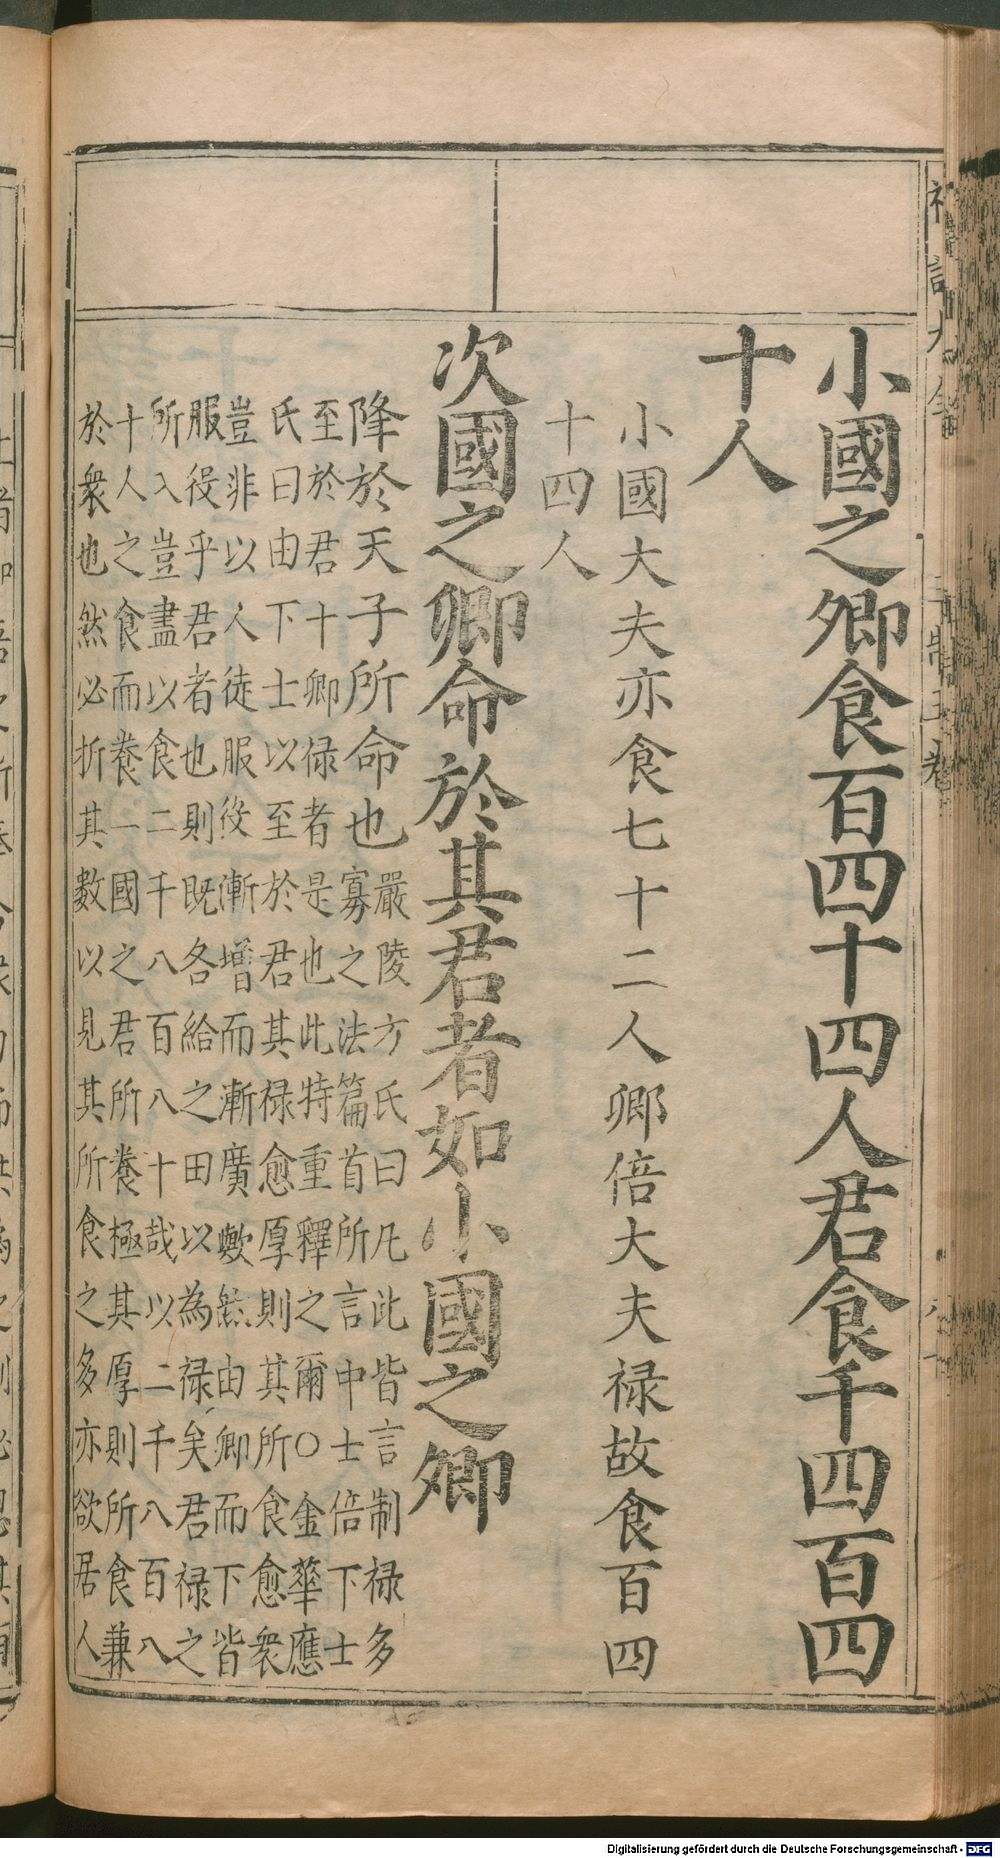 小國之卿食百四十四人君食千四百四
十人
小國大夫亦食七十二人卿倍大夫禄故食百四
十四人
次國之卿命於其君者如小國之卿
降於天子所命也
嚴陵方氏曰凡此皆言制禄多
寡之法篇首所言中士倍下士
至於君十卿禄者是也此特重釋之爾○金華應
氏曰由下士以至於君其禄愈厚則其所食愈衆
豈非以人徒服役漸增而漸廣歟然由卿而下皆
服役乎君者也則既各給之田以為禄矣君禄之
所入豈盡以食二千八百八十哉以二千八百八
十人之食而養一國之君所養極其厚則所食兼
於衆也然必折其數以見其所食之多亦欲居人
Digitalisierung gefördert durch die Deutsche Forschungsgemeinschaft - DFG